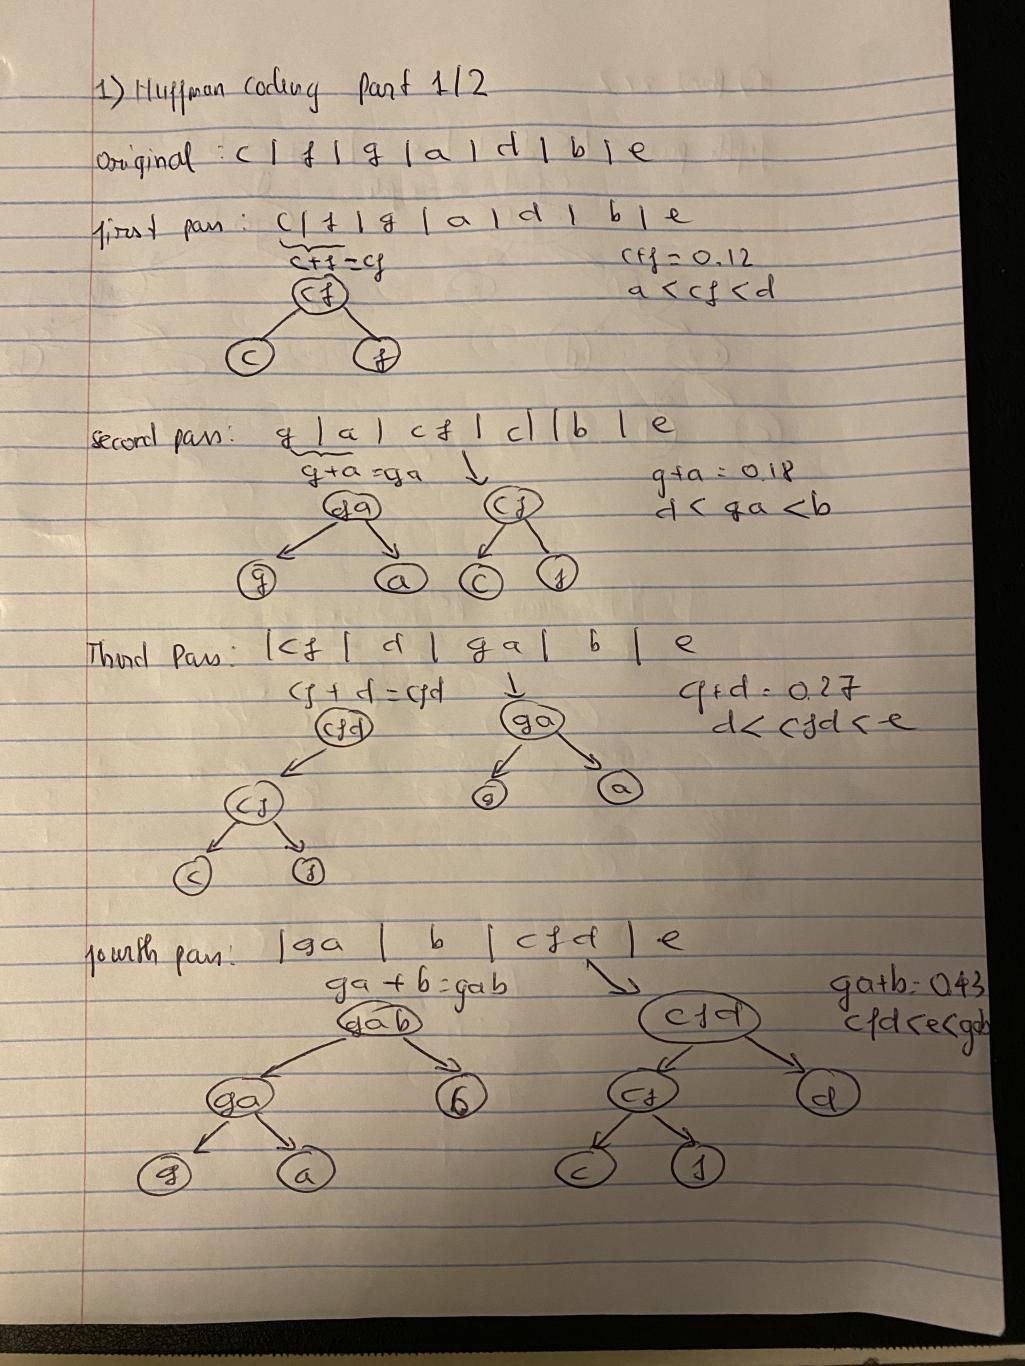 1) Huffman Coding Part 1/2
Original : c | f | g | a | d | b | e
first pass : c | f | g | a | d | b | e
c+f = cf
c+f = 0.12
a < cf < d
cf
c f
second pass: g | a | cf | d | b | e
g+a = ga
g+a = 0.18
d < ga < b
ga cf
g a c f
Third Pass: | cf | d | ga | b | e
cf + d = cfd
cf+d = 0.27
d < cfd < e
cfd ga
cf g a
c f
fourth pass: | ga | b | cfd | e
ga + b = gab
ga+b = 0.43
cfd < e < gab
gab cfd
ga b cf d
g a c f